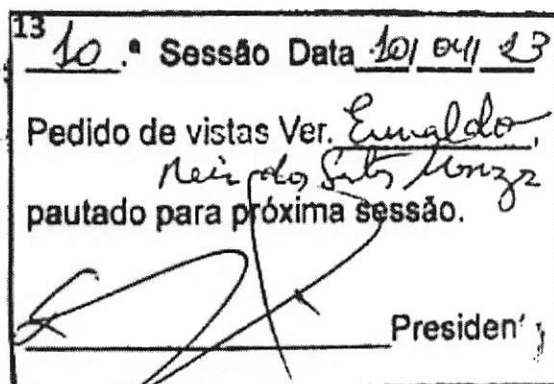 13
10.ª Sessão Data 10/04/13
Pedido de vistas Ver. Euvaldo,
dos
pautado para próxima sessão.
President